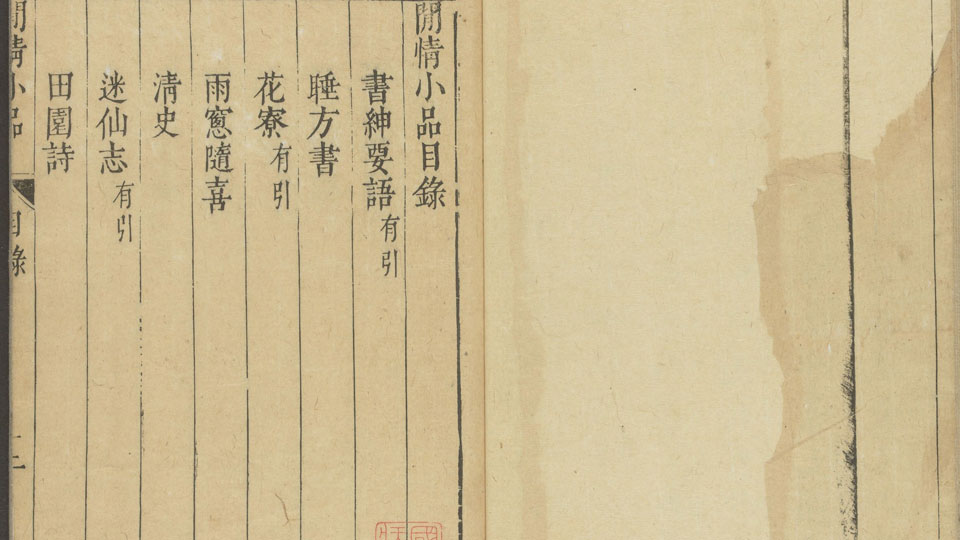 閒情小品目錄
書紳要語有引
睡方書
花寮有引
雨窻隨喜
淸史
迷仙志有引
田園詩
閒情小品
目錄